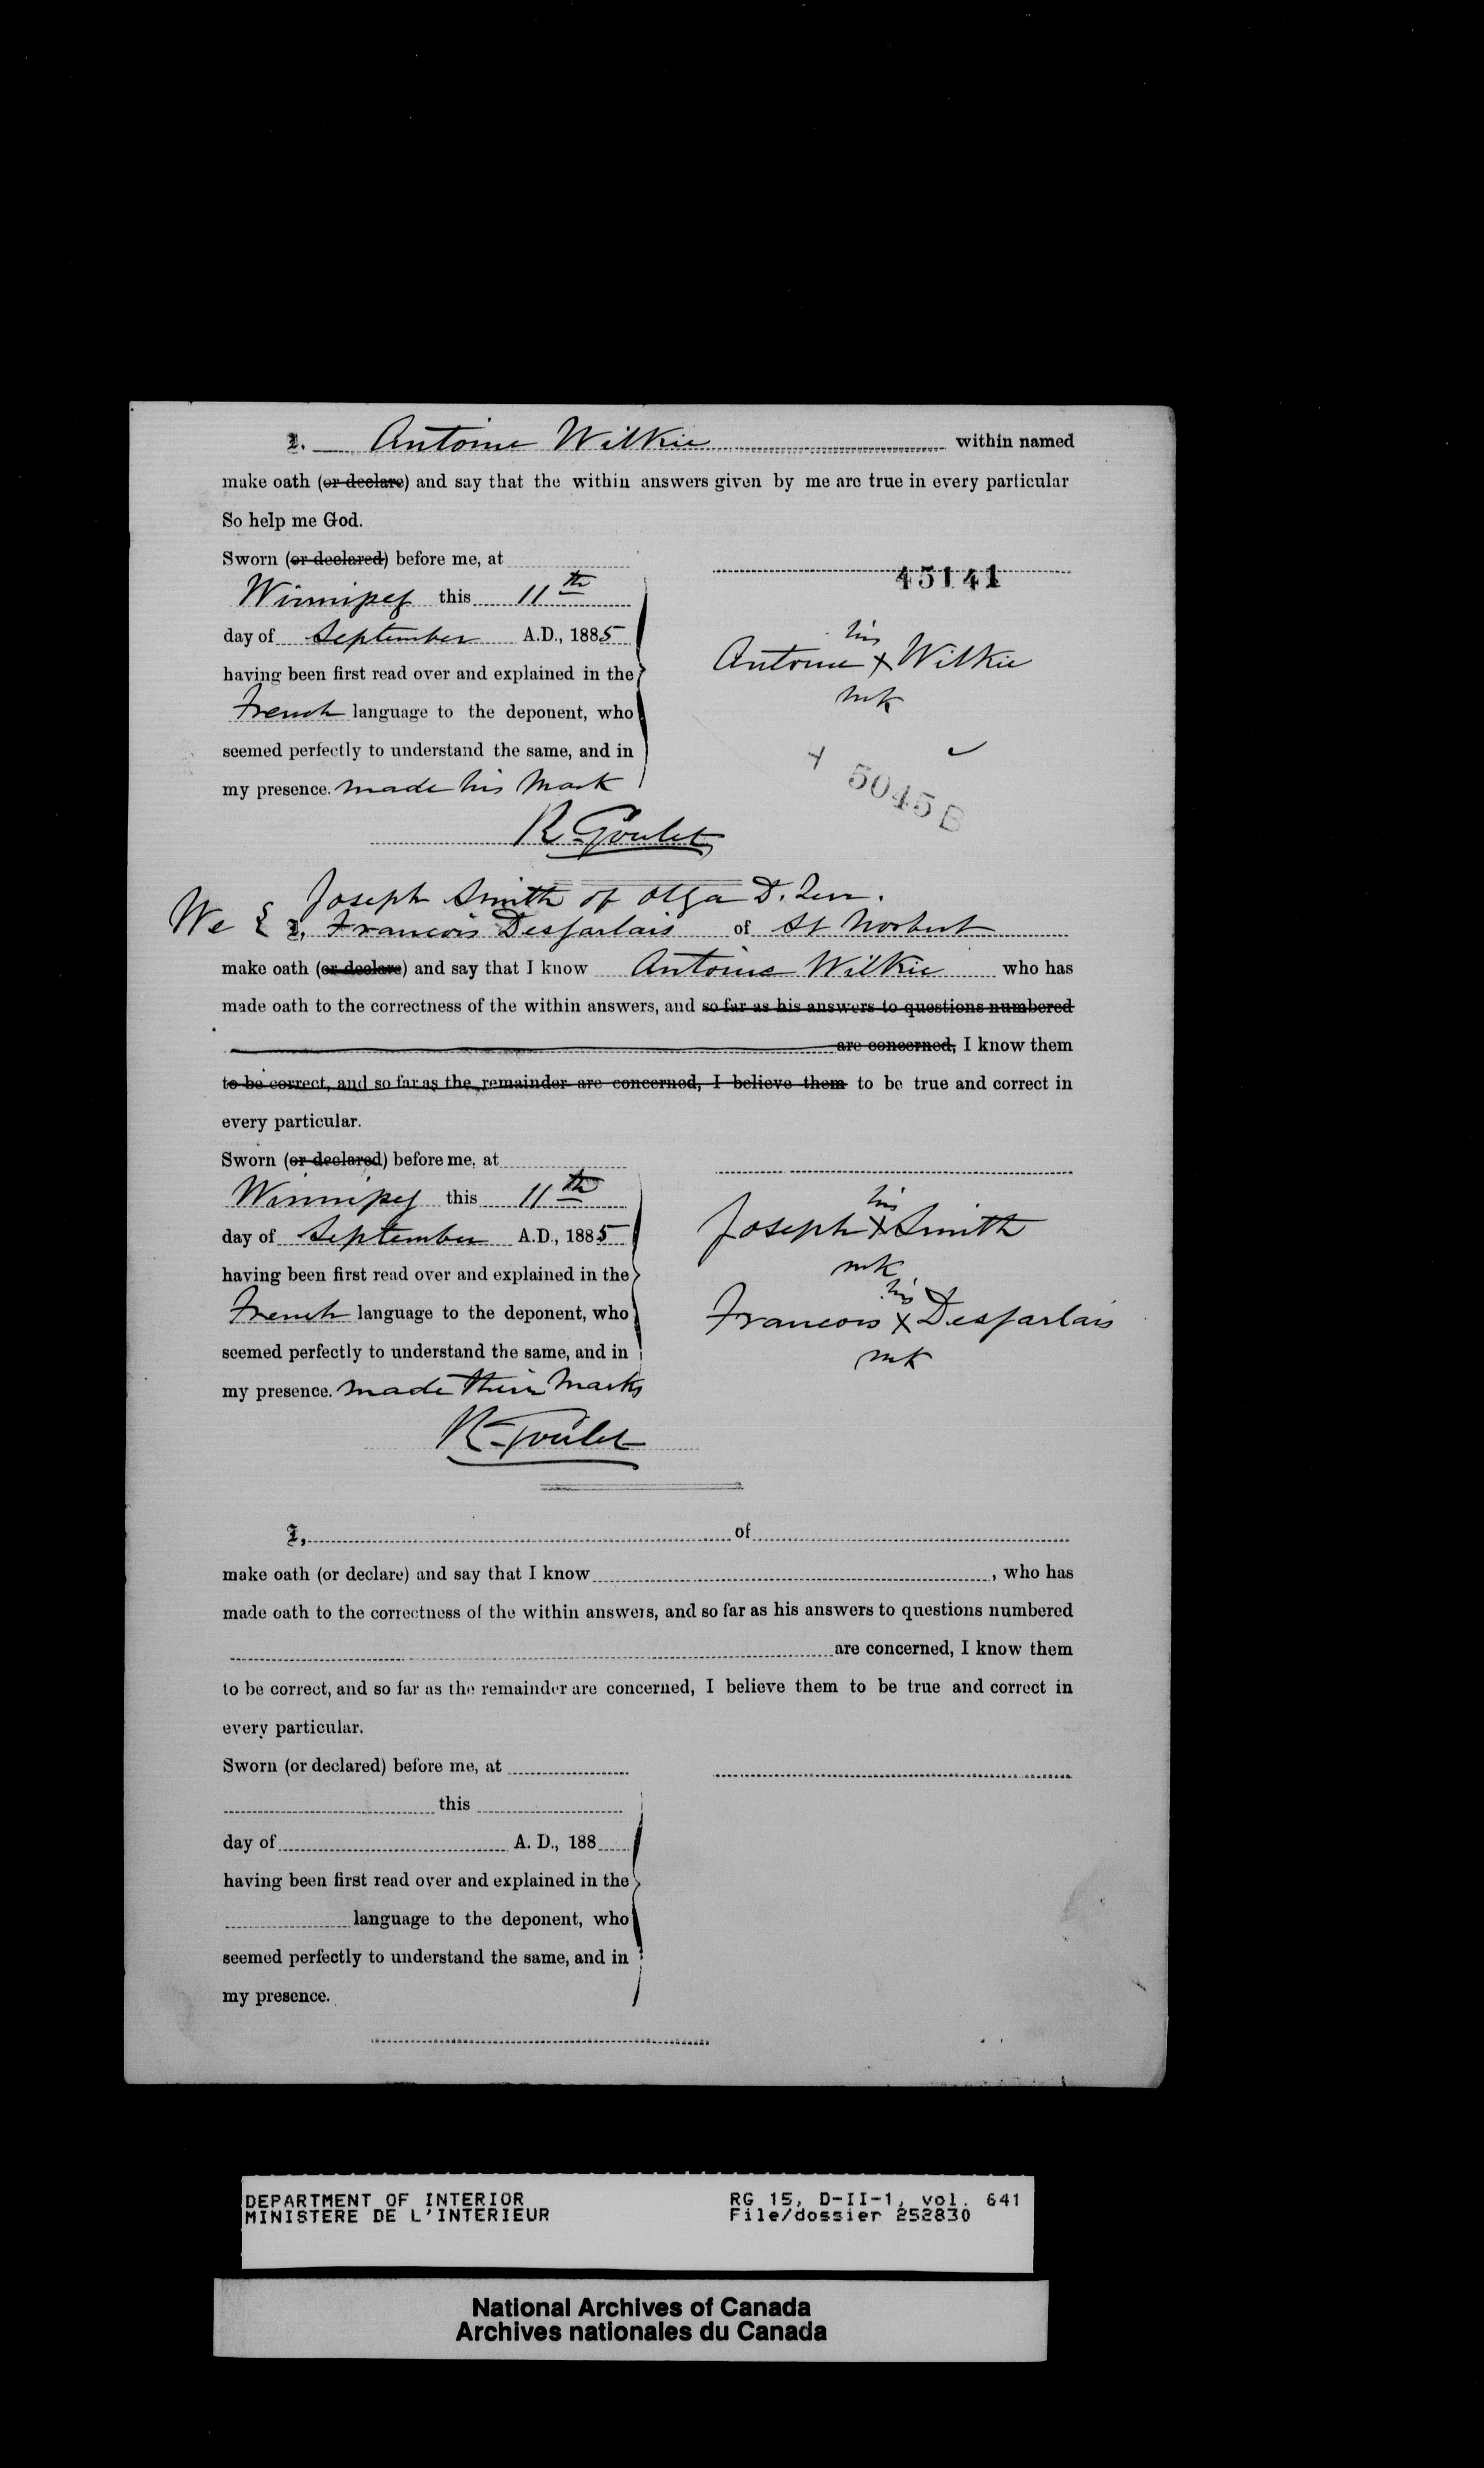 I, Antoine Wilkie within named
make oath (or declare) and say that the within answers given by me are true in every particular
So help me God.
Sworn (or declared) before me, at
Winnipeg this 11th
day of September A.D., 1885
having been first read over and explained in the
French language to the deponent, who
seemed perfectly to understand the same, and in
my presence. made his mark
R. Goulet
45141
his
Antoine X Wilkie
mk
5045 B
Joseph Smith of Olga D. Terr.
We { I, Francois Desjarlais of St Norbert
make oath (or declare) and say that I know Antoine Wilkie who has
made oath to the correctness of the within answers, and so far as his answers to questions numbered
are concerned, I know them
to be correct, and so far as the remainder are concerned, I believe them to be true and correct in
every particular.
Sworn (or declared) before me, at
Winnipeg this 11th
day of September A.D., 1885
having been first read over and explained in the
French language to the deponent, who
seemed perfectly to understand the same, and in
my presence. made their marks
R. Goulet
his
Joseph X Smith
mk
his
Francois X Desjarlais
mk
I, of
make oath (or declare) and say that I know , who has
made oath to the correctness of the within answers, and so far as his answers to questions numbered
are concerned, I know them
to be correct, and so far as the remainder are concerned, I believe them to be true and correct in
every particular.
Sworn (or declared) before me, at
this
day of A. D., 188
having been first read over and explained in the
language to the deponent, who
seemed perfectly to understand the same, and in
my presence.
DEPARTMENT OF INTERIOR RG 15, D-II-1, vol. 641
MINISTERE DE L'INTERIEUR File/dossier 252830
National Archives of Canada
Archives nationales du Canada